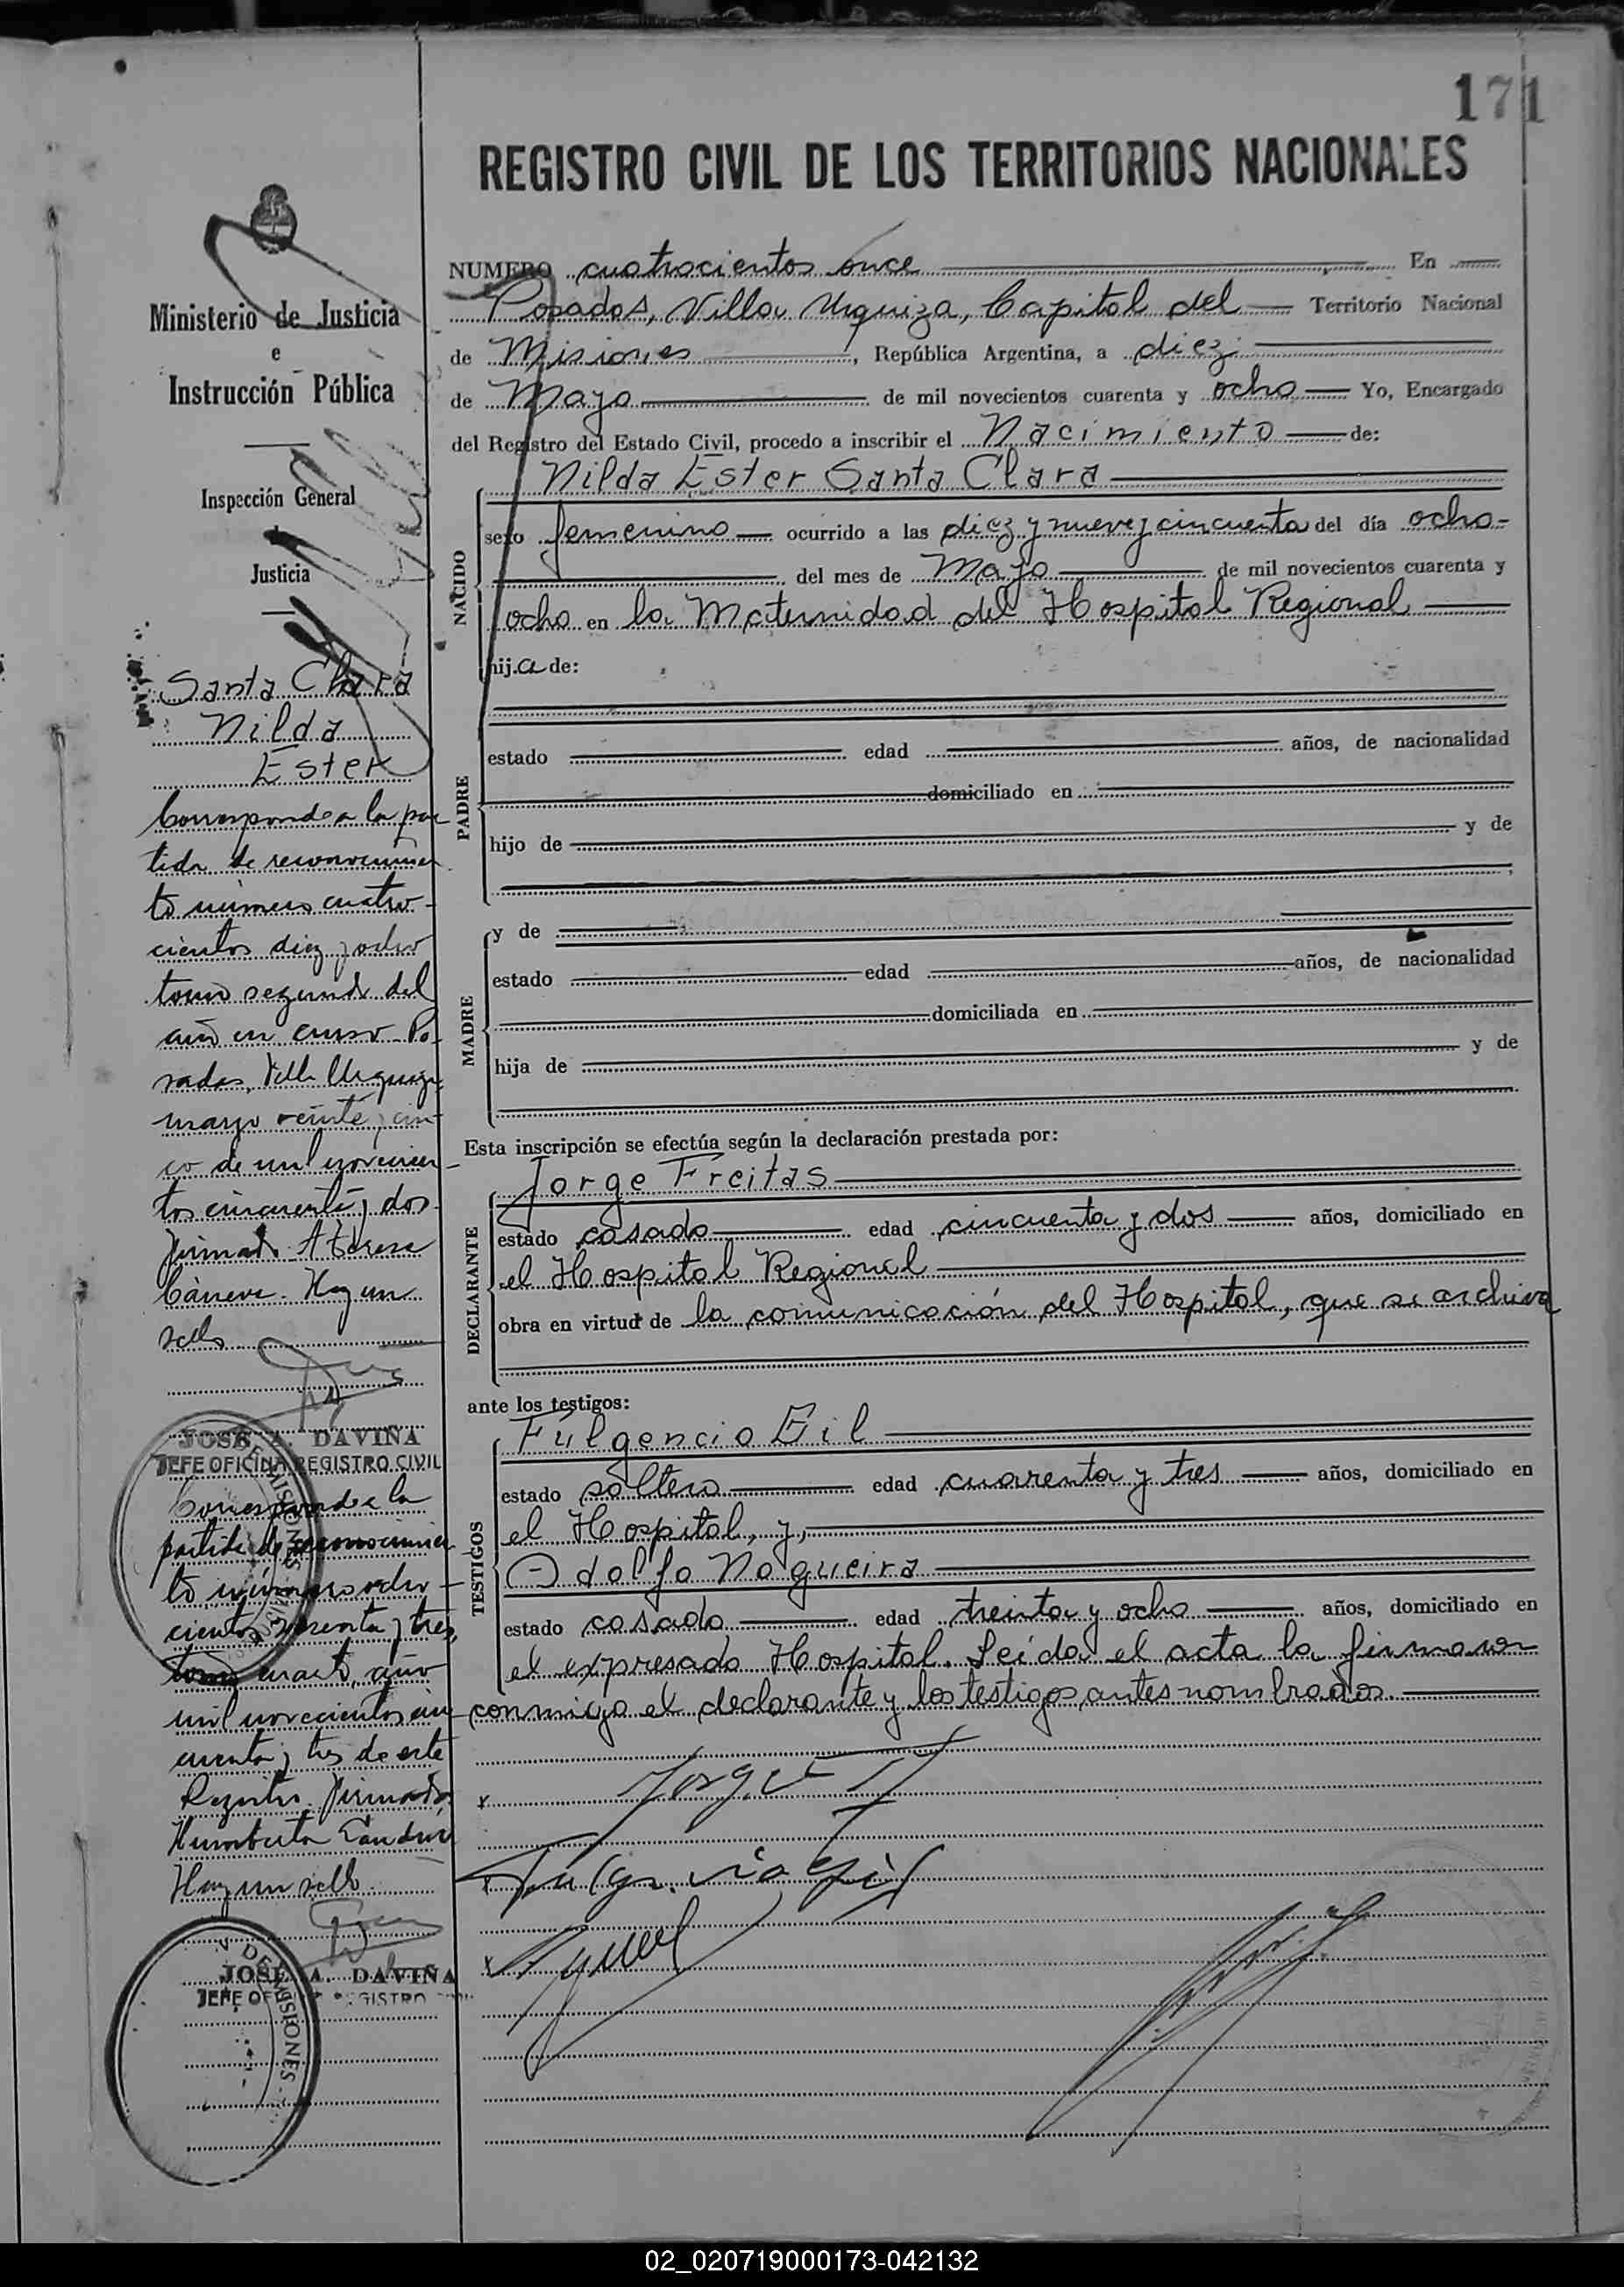 171
REGISTRO CIVIL DE LOS TERRITORIOS NACIONALES
Ministerio de Justicia
e
Instrucción Pública
Inspección General
de
Justicia
Santa Clara
Nilda
Ester
Corresponde a la par
tida de reconocimien
to número cuatro-
cientos diez y ocho
tomo segundo del
año en curso. Po-
sadas, Villa Urquiza,
marzo veinte y cin-
co de mil novecien-
tos cincuenta y dos.
firmado
Hay un
sello
JOSÉ A. DAVIÑA
JEFE OFICINA REGISTRO CIVIL
Corresponde a la
partida de reconocimien
to número ocho-
cientos y tres,
tomo cuarto, año
mil novecientos cin-
cuenta y tres de este
Registro. firmado,
Humberto
Hay un sello
DE MISIONES
JOSÉ A. DAVIÑA
NUMERO cuatrocientos once En
Posadas, Villa Urquiza, Capital del Territorio Nacional
de Misiones, República Argentina, a diez
de Mayo de mil novecientos cuarenta y ocho Yo, Encargado
del Registro del Estado Civil, procedo a inscribir el Nacimiento de:
Nilda Ester Santa Clara
NACIDO
sexo femenino ocurrido a las diez y nueve y cincuenta del día ocho-
del mes de Mayo de mil novecientos cuarenta y
ocho en la Maternidad del Hospital Regional
hij.a de:
PADRE
estado edad años, de nacionalidad
domiciliado en
hijo de y de
MADRE
y de
estado edad años, de nacionalidad
domiciliada en
hija de y de
Esta inscripción se efectúa según la declaración prestada por:
DECLARANTE
Jorge Freitas
estado casado edad cincuenta y dos años, domiciliado en
el Hospital Regional
obra en virtud de la comunicación del Hospital, que se archiva
ante los testigos:
TESTIGOS
Fulgencio Gil
estado soltero edad cuarenta y tres años, domiciliado en
el Hospital, y,
Adolfo Nogueira
estado casado edad treinta y ocho años, domiciliado en
el expresado Hospital. Leída el acta la firmaron
conmigo el declarante y los testigos antes nombrados.
02_020719000173-042132